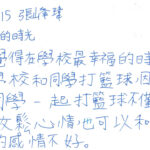 15 張
的時光
覺得在學校最幸福的時
學校和同學打籃球因
同學一起打籃球不僅
放鬆心情也可以和
的感情不好。